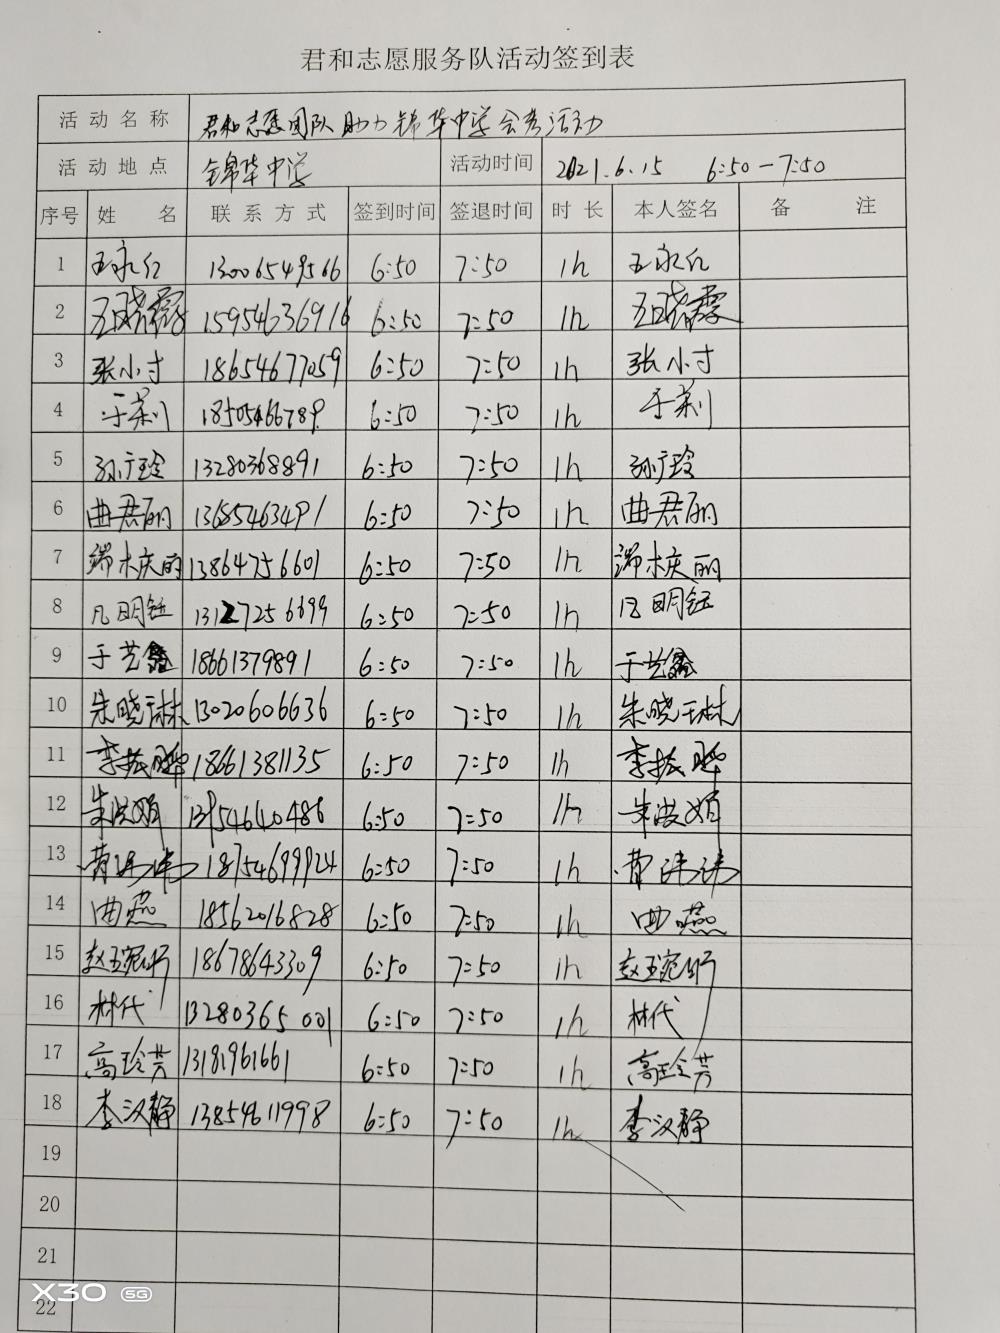 君和志愿服务队活动签到表
活动名称 君和志愿团队助力锦华中学会考活动
活动地点 锦华中学 活动时间 2021.6.15 6:50—7:50
序号 姓名 联系方式 签到时间 签退时间 时长 本人签名 备注
1 王永红 13006549566 6:50 7:50 1h 王永红
2 15954636916 6:50 7:50 1h
3 张小寸 18654677059 6:50 7:50 1h 张小寸
4 于莉 18505466789 6:50 7:50 1h 于莉
5 孙广玲 13280368891 6:50 7:50 1h 孙广玲
6 曲君丽 13685463491 6:50 7:50 1h 曲君丽
7 端木庆丽 13864756601 6:50 7:50 1h 端木庆丽
8 明钰 13127256699 6:50 7:50 1h 明钰
9 于艺鑫 18661379891 6:50 7:50 1h 于艺鑫
10 朱晓琳 13020606636 6:50 7:50 1h 朱晓琳
11 李振晔 18661381135 6:50 7:50 1h 李振晔
12 朱波娟 13954640486 6:50 7:50 1h 朱波娟
13 18754699924 6:50 7:50 1h
14 曲燕 18562016828 6:50 7:50 1h 曲燕
15 赵玉 18678643309 6:50 7:50 1h 赵玉
16 林代 13280365001 6:50 7:50 1h 林代
17 高玲芳 13181961661 6:50 7:50 1h 高玲芳
18 李汉静 13854611998 6:50 7:50 1h 李汉静
19
20
21
22
X30 5G